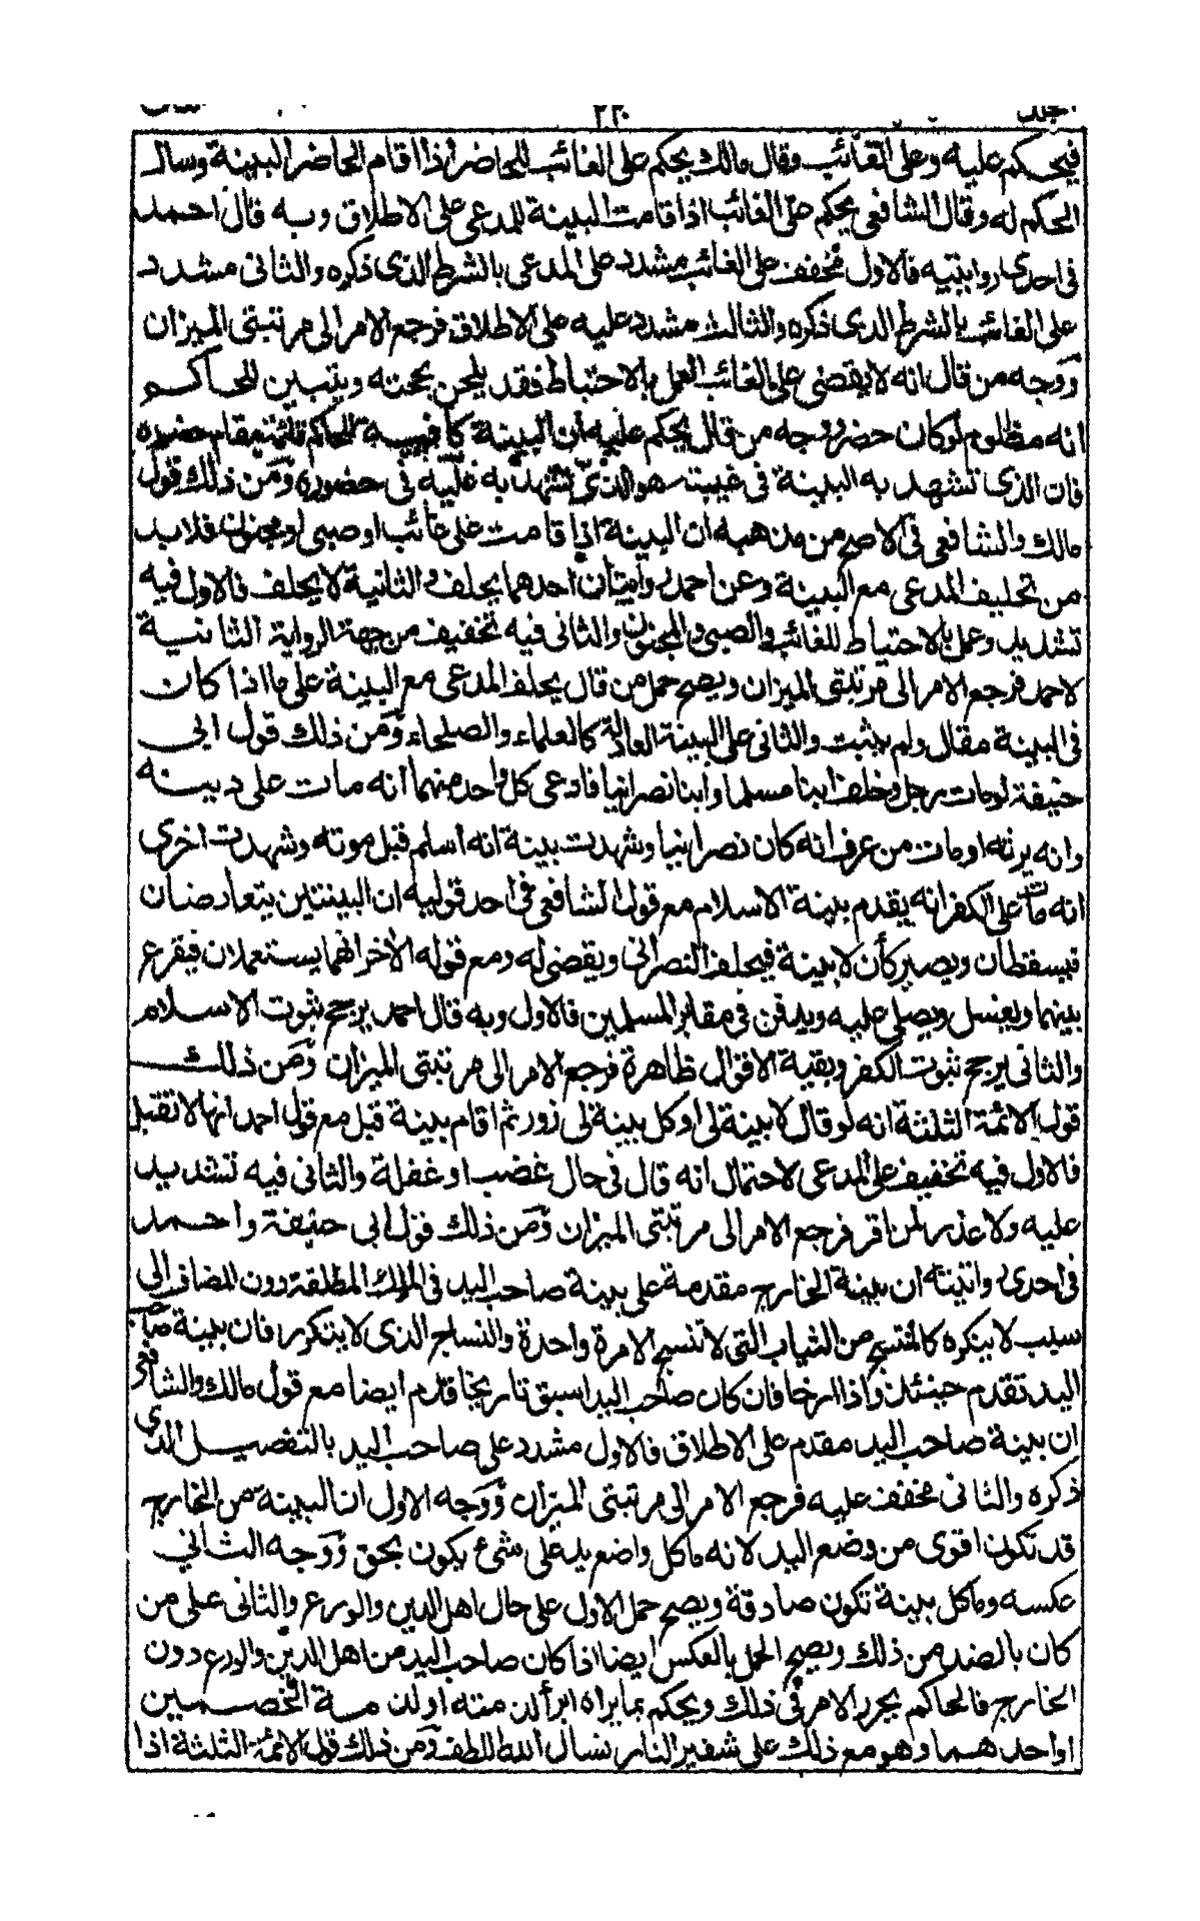 فيحكم عليه وعلى الغائب وقال مالك يحكم على الغائب للحاضر اذا اقام الحاضر البينة وسال
الحكم له وقال الشافعي يحكم على الغائب اذا قامت البينة للمدعى على الاطلاق وبه قال احمد
فى احدى روايتيه فالاول مخفف على الغائب مشدد على المدعى بالشرط الذى ذكره والثانى مشدد
على الغائب بالشرط الذى ذكره والثالث مشدد عليه على الاطلاق فرجع الامر الى مرتبتى الميزان
ووجه من قال انه لا يقضى على الغائب العمل بالاحتياط فقد يلحن بحجته ويتبين للحاكم
انه مظلوم لو كان حضر ووجه من قال يحكم عليه ان البينة كافية للحاكم قائمة مقام حضوره
فان الذى تشهد به البينة فى غيبته هو الذى تشهد به عليه فى حضوره ومن ذلك قول
مالك والشافعي فى الاصح من مذهبه ان البينة اذا قامت على غائب او صبى او مجنون فلا بد
من تحليف المدعى مع البينة وعن احمد روايتان احدهما يحلف والثانية لا يحلف فالاول فيه
تشديد وعمل بالاحتياط للغائب والصبى والمجنون والثانى فيه تخفيف من جهة الرواية الثانية
لاحمد فرجع الامر الى مرتبتى الميزان ويصح حمل من قال يحلف المدعى مع البينة على ما اذا كان
فى البينة مقال ولم يثبت والثانى على البينة العادلة كالعلماء والصلحاء ومن ذلك قول ابى
حنيفة لو مات رجل وخلف ابنا مسلما وابنا نصرانيا فادعى كل واحد منهما انه مات على دينه
وانه يرثه او مات من عرف انه كان نصرانيا وشهدت بينة انه اسلم قبل موته وشهدت اخرى
انه مات على الكفر انه يقدم بينة الاسلام مع قول الشافعي فى احد قوليه ان البينتين يتعارضان
فيسقطان ويصير كأن لا بينة فيحلف النصرانى ويقضى له ومع قوله الآخر انهما يستعملان فيقرع
بينهما ويغسل ويصلى عليه ويدفن فى مقابر المسلمين فالاول وبه قال احمد يرجح ثبوت الاسلام
والثانى يرجح ثبوت الكفر وبقية الاقوال ظاهرة فرجع الامر الى مرتبتى الميزان ومن ذلك
قول الائمة الثلثة انه لو قال لا بينة لى او كل بينة لى زور ثم اقام بينة قبل مع قول احمد انها لا تقبل
فالاول فيه تخفيف على المدعى لاحتمال انه قال فى حال غضب او غفلة والثانى فيه تشديد
عليه ولا عذر لمن اقر فرجع الامر الى مرتبتى الميزان ومن ذلك قول ابى حنيفة واحمد
فى احدى روايتيه ان بينة الخارج مقدمة على بينة صاحب اليد فى الملك المطلقة دون المضاف الى
سبب لا يتكرر كالنسج من الثياب التى لا تنسج الا مرة واحدة والنساج الذى لا يتكرر فان بينة صاحب
اليد تقدم حينئذ واذا ارخا فان كان صاحب اليد اسبق تاريخا قدم ايضا مع قول مالك والشافعى
ان بينة صاحب اليد مقدم على الاطلاق فالاول مشدد على صاحب اليد بالتفصيل الذى
ذكره والثانى مخفف عليه فرجع الامر الى مرتبتى الميزان ووجه الاول ان البينة من الخارج
قد تكون اقوى من وضع اليد لانه ما كل واضع يد على شئ يكون بحق ووجه الثانى
عكسه وما كل بينة تكون صادقة ويصح حمل الاول على حال اهل الدين والورع والثانى على من
كان بالضد من ذلك ويصح الحمل بالعكس ايضا اذا كان صاحب اليد من اهل الدين والورع دون
الخارج فالحاكم يحرر الامر فى ذلك ويحكم بما يراه ابرأ لذمته او لذمة الخصمين
او احدهما وهو مع ذلك على شفير النار نسال الله اللطف ومن ذلك قول الائمة الثلثة اذا